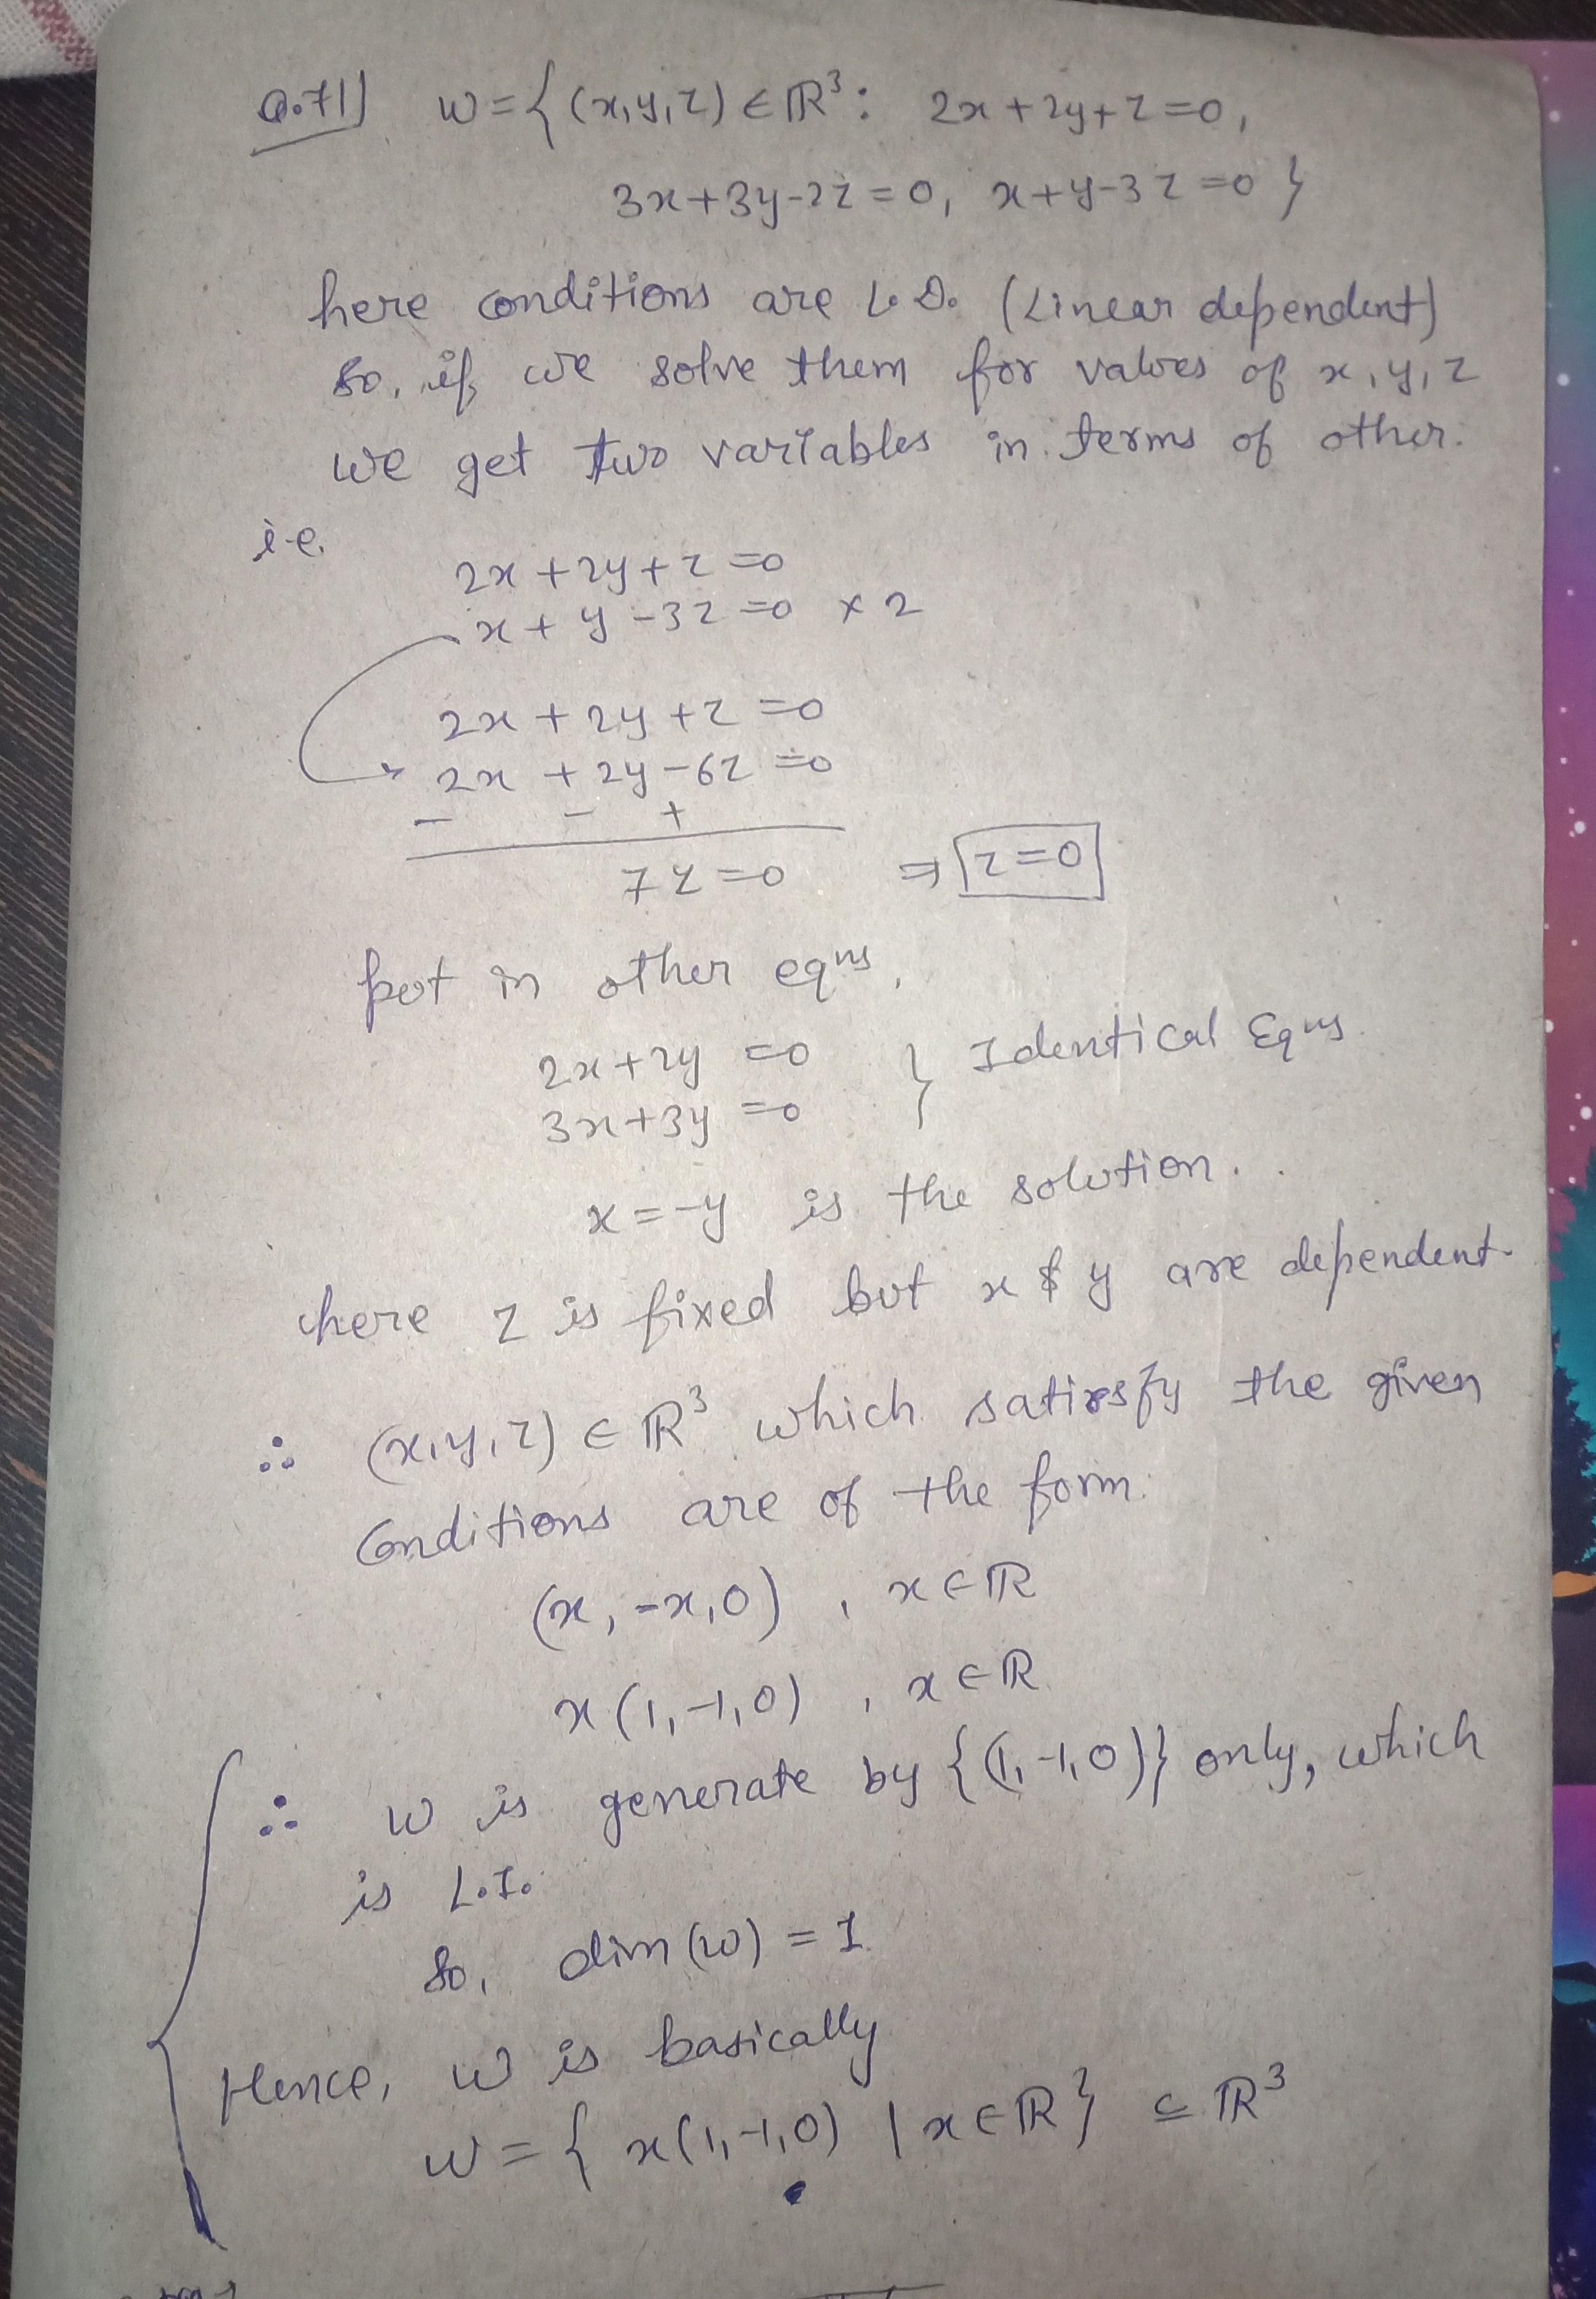 Q.71) W = { (x,y,z) ∈ ℝ³ : 2x + 2y + z = 0,
3x + 3y - 2z = 0, x + y - 3z = 0 }
here conditions are L.D. (Linear dependent)
so, if we solve them for values of x, y, z
we get two variables in terms of other.
i.e.
2x + 2y + z = 0
x + y - 3z = 0 × 2
2x + 2y + z = 0
2x + 2y - 6z = 0
- - +
7z = 0 ⇒ z = 0
put in other eqns,
2x + 2y = 0 } Identical Eqns.
3x + 3y = 0
x = -y is the solution.
here z is fixed but x & y are dependent.
∴ (x,y,z) ∈ ℝ³ which satisfy the given
Conditions are of the form.
(x, -x, 0) , x ∈ ℝ
x (1, -1, 0) , x ∈ ℝ
∴ W is generate by {(1, -1, 0)} only, which
is L.I.
So, dim (W) = 1
Hence, W is basically
W = { x(1, -1, 0) | x ∈ ℝ } ⊆ ℝ³